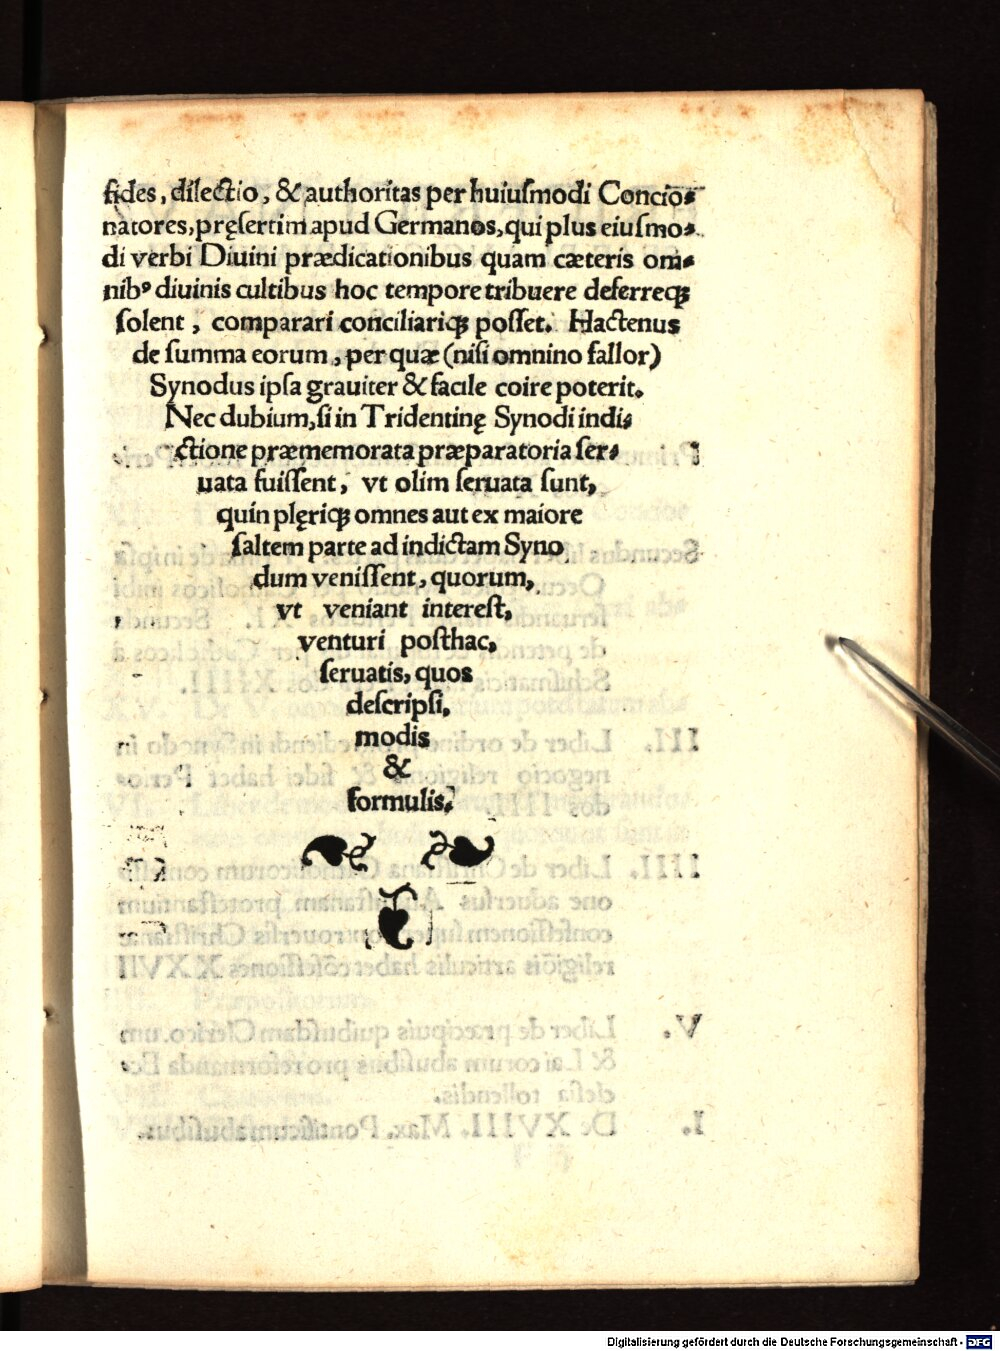 fides, dilectio, & authoritas per huiuſmodi Concio⸗
natores, pręſertim apud Germanos, qui plus eiuſmo⸗
di verbi Diuini prædicationibus quam cæteris om⸗
nibꝰ diuinis cultibus hoc tempore tribuere deferreqꝫ
ſolent, comparari conciliariqꝫ poſſet. Hactenus
de ſumma eorum, per quæ (niſi omnino fallor)
Synodus ipſa grauiter & facile coire poterit.
Nec dubium, ſi in Tridentinę Synodi indi⸗
ctione præmemorata præparatoria ſer⸗
uata fuiſſent, vt olim ſeruata ſunt,
quin plęriqꝫ omnes aut ex maiore
ſaltem parte ad indictam Syno
dum veniſſent, quorum,
vt veniant intereſt,
venturi poſthac,
ſeruatis, quos
deſcripſi,
modis
&
formulis.
Digitalisierung gefördert durch die Deutsche Forschungsgemeinschaft - DFG